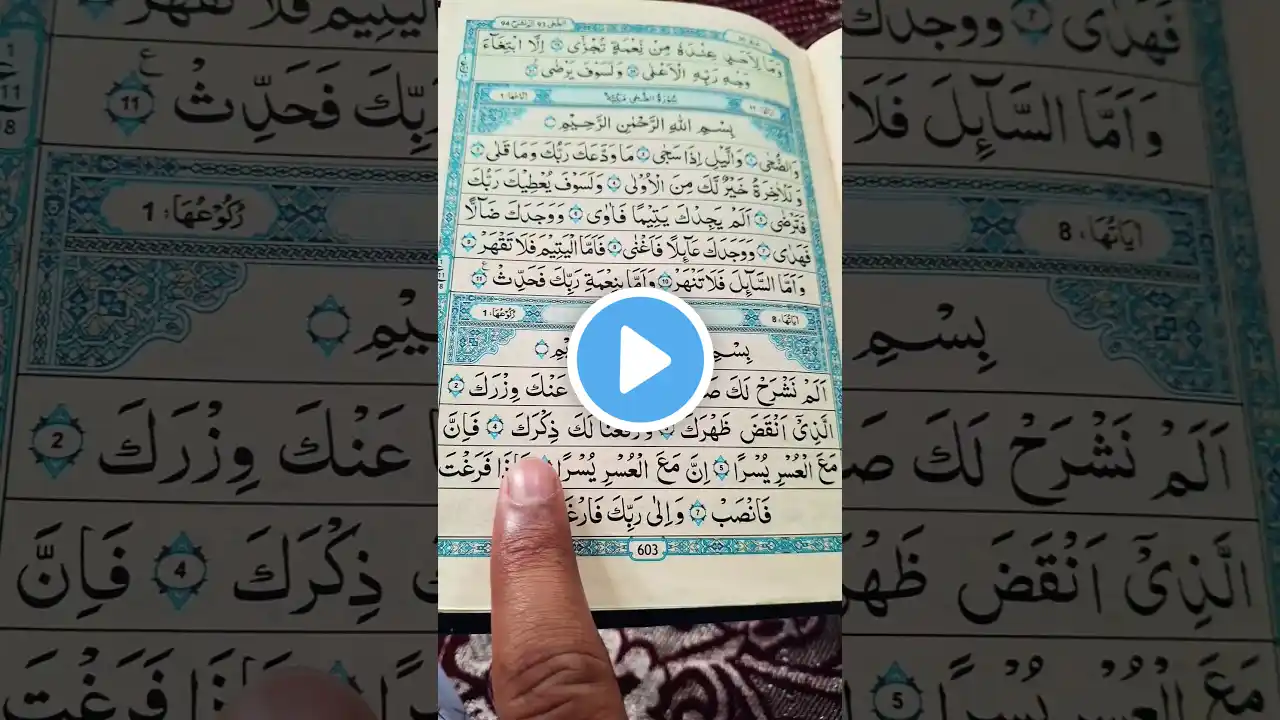 الضحى 93 الم نشرح 94
وَمَا لِاَحَدٍ عِنْدَهٗ مِنْ نِّعْمَةٍ تُجْزٰۤى ۙ اِلَّا ابْتِغَآءَ
وَجْهِ رَبِّهِ الْاَعْلٰى ۚ وَلَسَوْفَ يَرْضٰى
سُوْرَةُ الضُّحٰى مَكِّيَّةٌ
بِسْمِ اللّٰهِ الرَّحْمٰنِ الرَّحِيْمِ
وَالضُّحٰى 1 وَالَّيْلِ اِذَا سَجٰى 2 مَا وَدَّعَكَ رَبُّكَ وَمَا قَلٰى 3
وَلَلْاٰخِرَةُ خَيْرٌ لَّكَ مِنَ الْاُوْلٰى 4 وَلَسَوْفَ يُعْطِيْكَ رَبُّكَ
فَتَرْضٰى 5 اَلَمْ يَجِدْكَ يَتِيْمًا فَاٰوٰى 6 وَوَجَدَكَ ضَآلًّا
فَهَدٰى 7 وَوَجَدَكَ عَآئِلًا فَاَغْنٰى 8 فَاَمَّا الْيَتِيْمَ فَلَا تَقْهَرْ 9
وَاَمَّا السَّآئِلَ فَلَا تَنْهَرْ 10 وَاَمَّا بِنِعْمَةِ رَبِّكَ فَحَدِّثْ 11
اٰيَاتُهَا، 8 رُكُوْعُهَا، 1
بِسْمِ
اَلَمْ نَشْرَحْ لَكَ عَنْكَ وِزْرَكَ 2
الَّذِيْۤ اَنْقَضَ ظَهْرَكَ وَرَفَعْنَا لَكَ ذِكْرَكَ 4 فَاِنَّ
مَعَ الْعُسْرِ يُسْرًا 5 اِنَّ مَعَ الْعُسْرِ يُسْرًا فَاِذَا فَرَغْتَ
فَانْصَبْ 7 وَاِلٰى رَبِّكَ
603